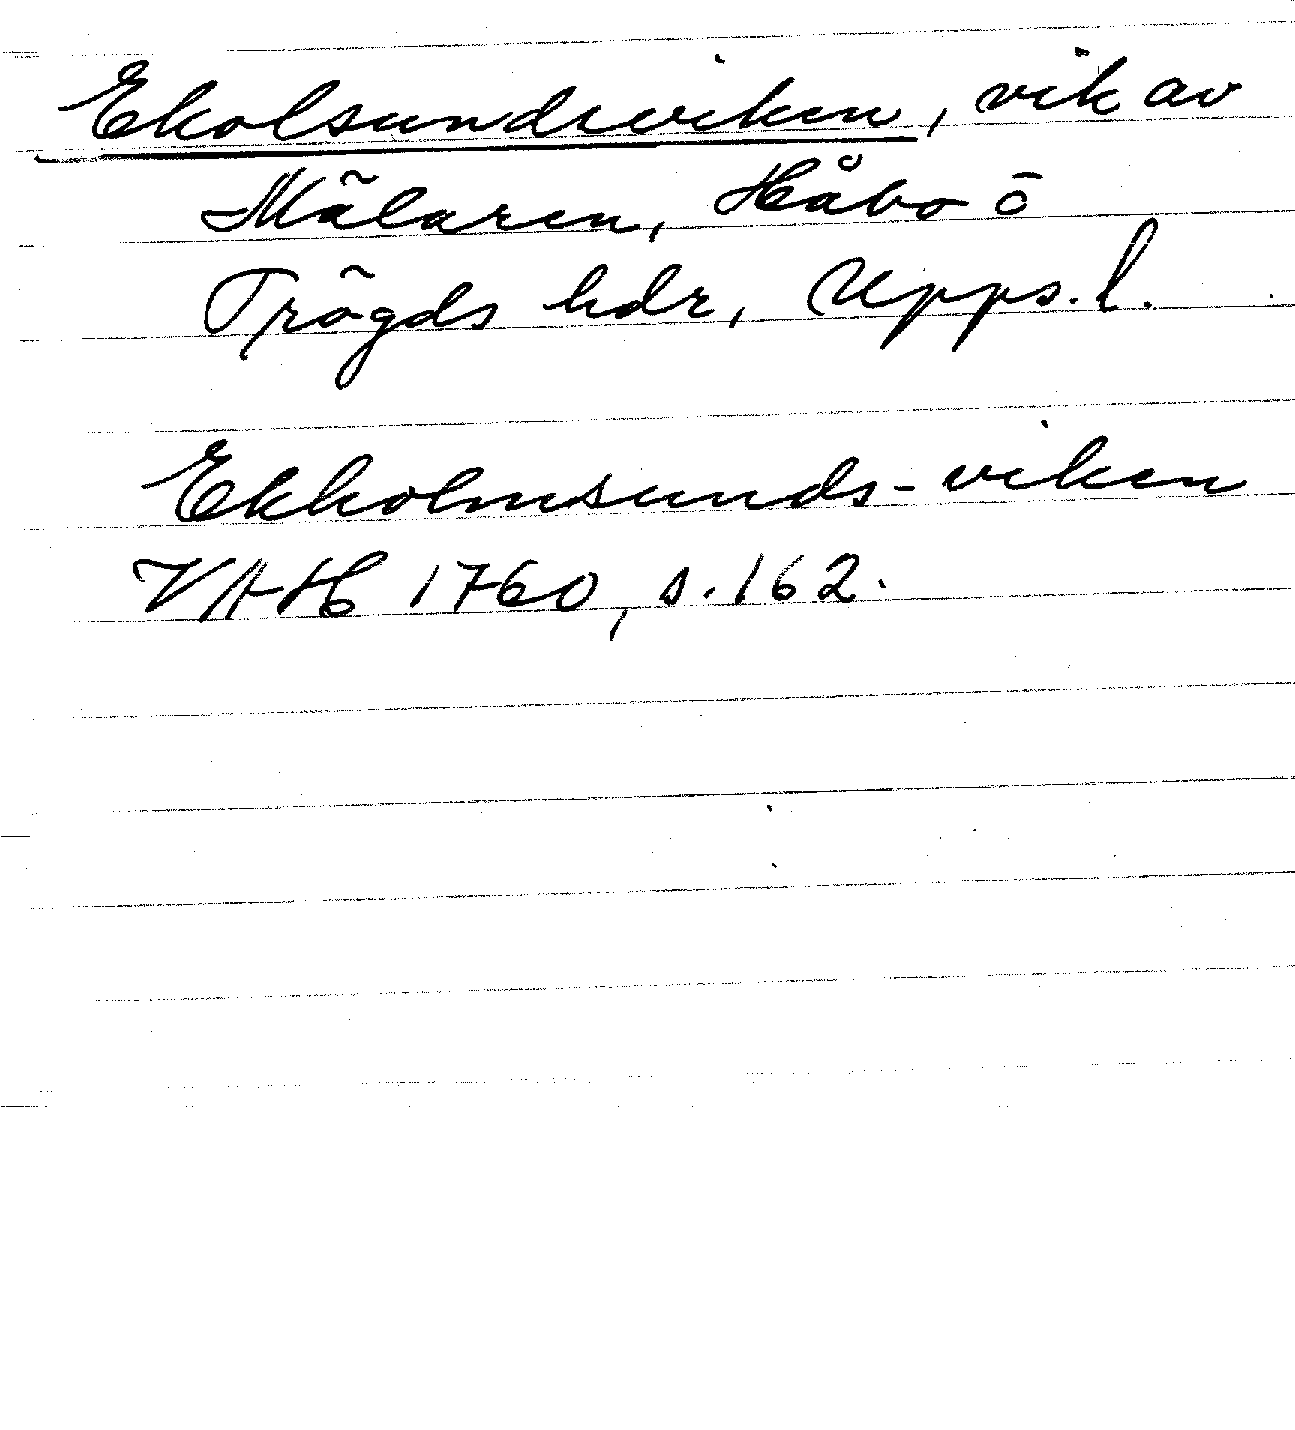 Ekolsundsviken, vik av
Mälaren, Håbo o
Trögds hdr, Upps. l.
Ekholmsunds-viken
VAH 1760, s. 162.